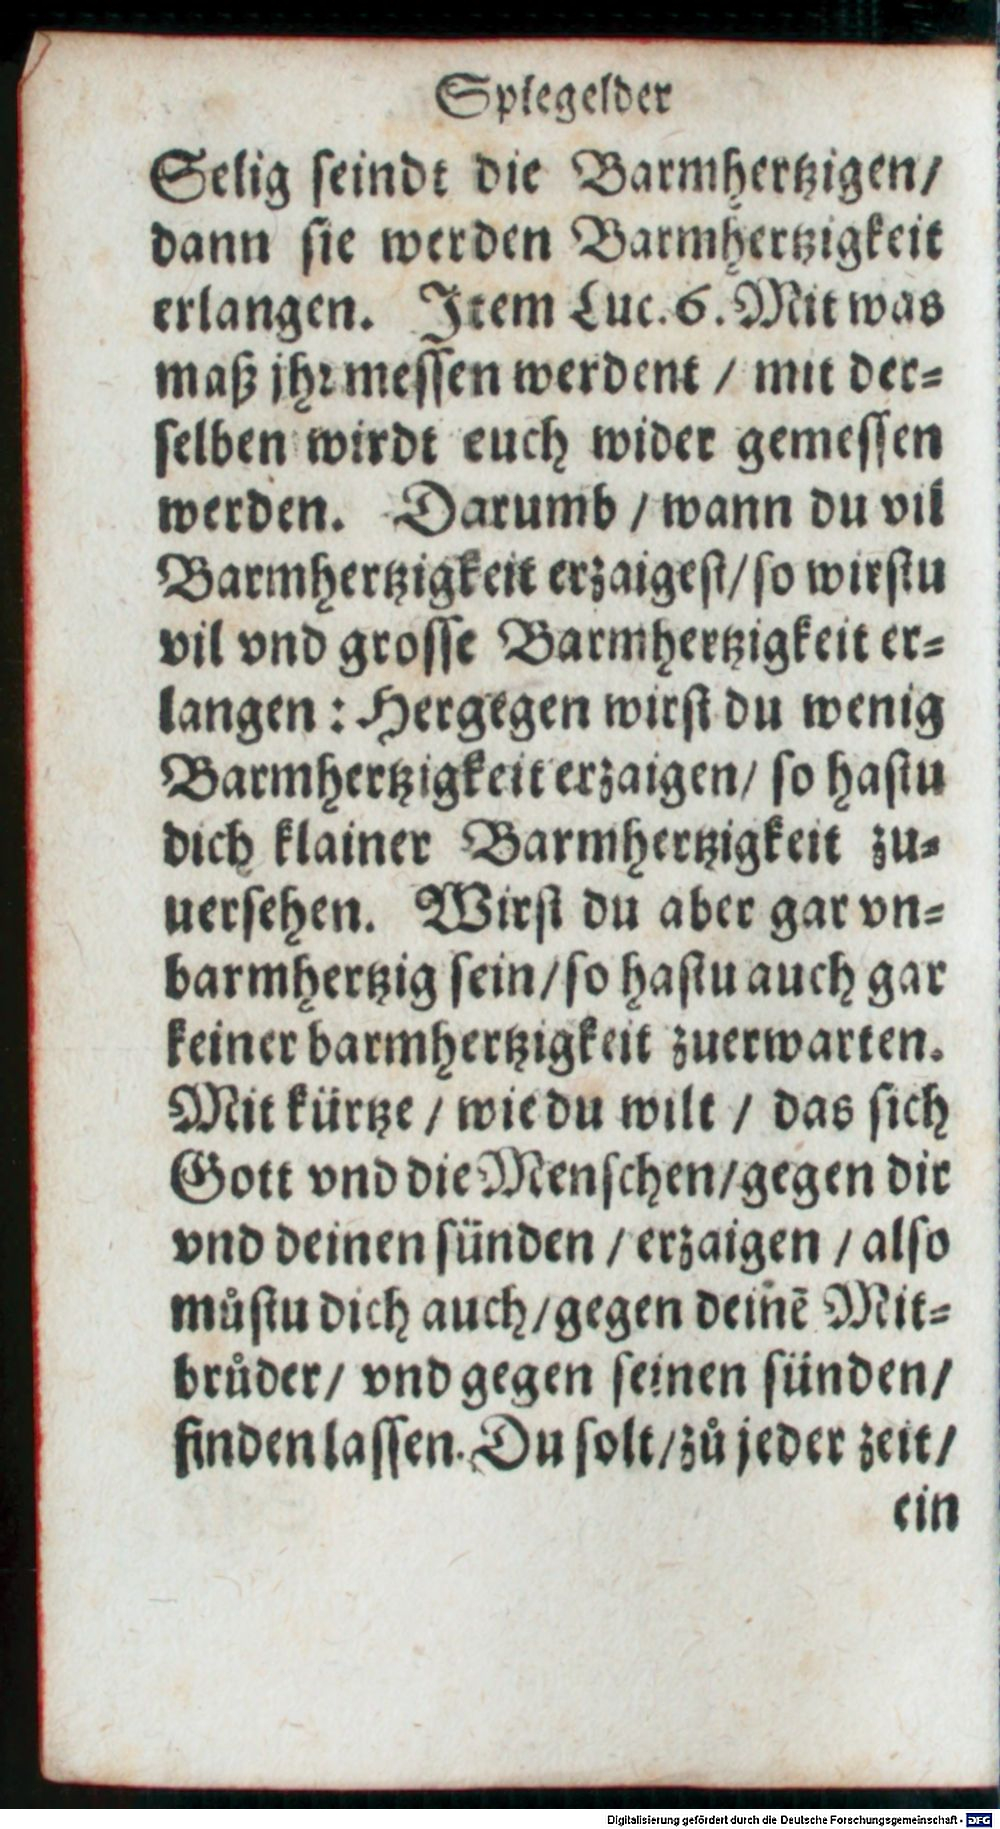 Spiegel der
Selig seindt die Barmhertzigen/
dann sie werden Barmhertzigkeit
erlangen. Item Luc. 6. Mit was
maß jhr messen werdent / mit der=
selben wirdt euch wider gemessen
werden. Darumb / wann du vil
Barmhertzigkeit erzaigest/ so wirstu
vil vnd grosse Barmhertzigkeit er=
langen : Hergegen wirst du wenig
Barmhertzigkeit erzaigen/ so hastu
dich klainer Barmhertzigkeit zu=
uersehen. Wirst du aber gar vn=
barmhertzig sein/ so hastu auch gar
keiner barmhertzigkeit zuerwarten.
Mit kürtze / wie du wilt / das sich
Gott vnd die Menschen/ gegen dir
vnd deinen sünden / erzaigen / also
můstu dich auch/ gegen deinē Mit=
brůder/ vnd gegen seinen sünden/
finden lassen. Du solt/ zů jeder zeit/
ein
Digitalisierung gefördert durch die Deutsche Forschungsgemeinschaft - DFG